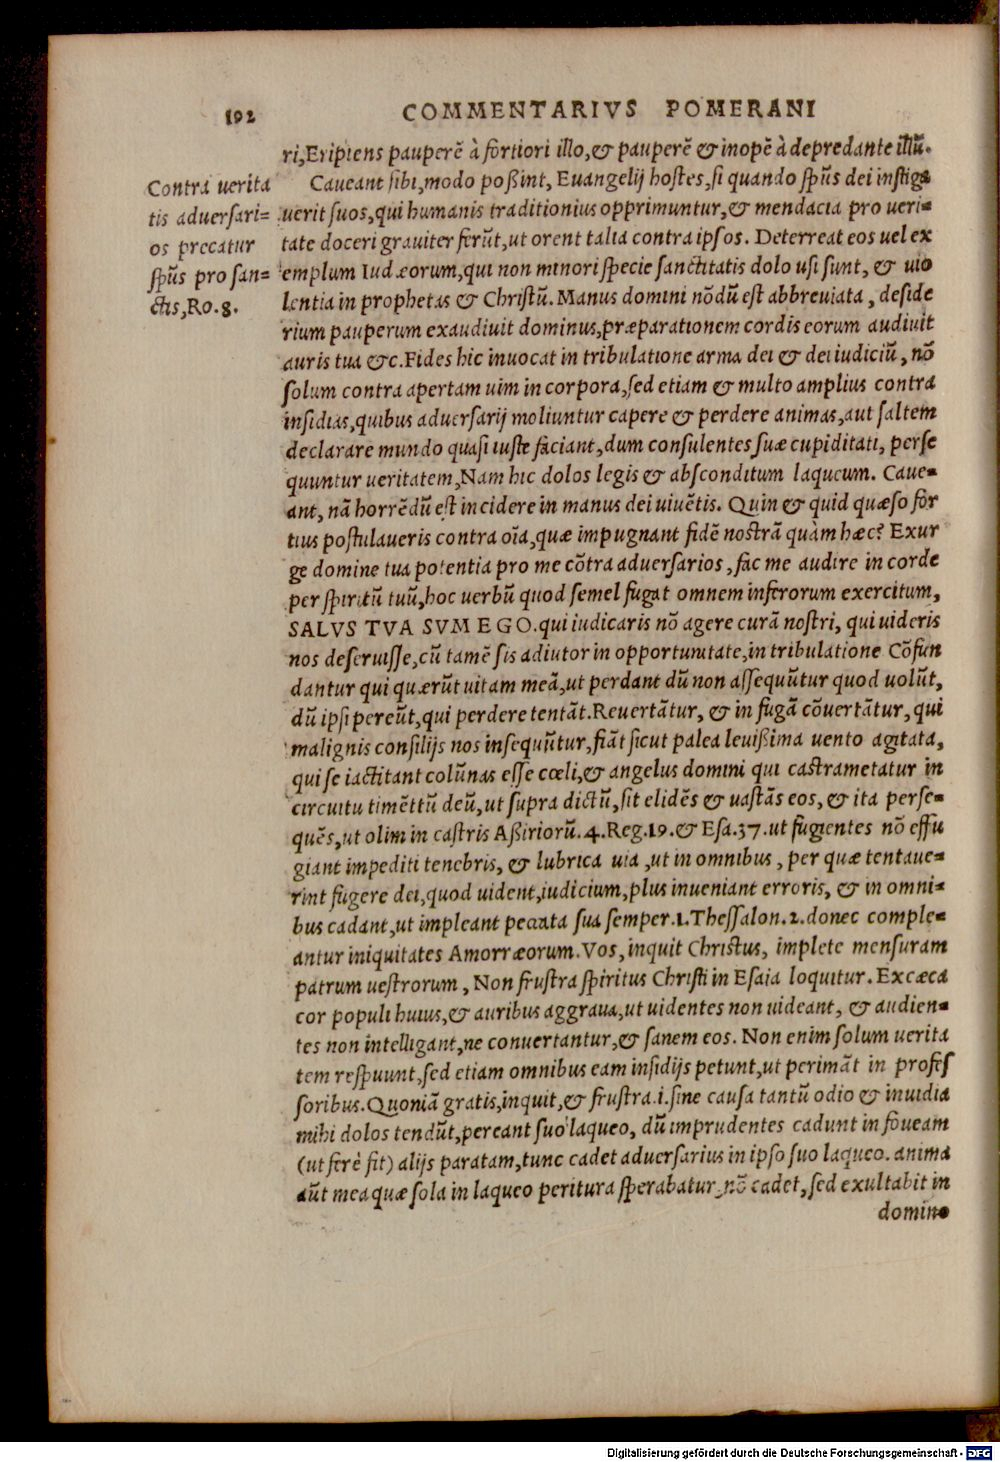 192 COMMENTARIVS POMERANI
ri,Eripiens pauperē à fortiori illo,& pauperē & inopē à depredante illū.
Contra uerita
tis aduersari=
os precatur
spūs pro san=
ctis,Ro.8.
Caueant sibi,modo poßint, Euangelij hostes,si quando spūs dei instiga
uerit suos,qui humanis traditionius opprimuntur,& mendacia pro ueri=
tate doceri grauiter ferūt,ut orent talia contra ipsos. Deterreat eos uel ex
emplum Iudæorum,qui non minori specie sanctitatis dolo usi sunt, & uio
lentia in prophetas & Christū. Manus domini nōdū est abbreuiata, deside
rium pauperum exaudiuit dominus,præparationem cordis eorum audiuit
auris tua &c. Fides hic inuocat in tribulatione arma dei & dei iudiciū, nō
solum contra apertam uim in corpora,sed etiam & multo amplius contra
insidias,quibus aduersarij moliuntur capere & perdere animas,aut saltem
declarare mundo quasi iuste faciant,dum consulentes suæ cupiditati, perse
quuntur ueritatem,Nam hic dolos legis & absconditum laqueum. Caue=
ant, nā horrēdū est incidere in manus dei uiuētis. Quin & quid quæso for
tius postulaueris contra oīa,quæ impugnant fidē nostrā quàm hæc? Exur
ge domine tua potentia pro me cōtra aduersarios, fac me audire in corde
per spiritū tuū,hoc uerbū quod semel fugat omnem inferorum exercitum,
SALVS TVA SVM EGO.qui iudicaris nō agere curā nostri, qui uideris
nos deseruisse,cū tamē sis adiutor in opportunitate,in tribulatione Cōfun
dantur qui quærūt uitam meā,ut perdant dū non assequūtur quod uolūt,
dū ipsi pereūt,qui perdere tentāt.Reuertātur, & in fugā cōuertātur, qui
malignis consilijs nos insequūtur,fiāt sicut palea leuißima uento agitata,
qui se iactitant colūnas esse cœli,& angelus domini qui castrametatur in
circuitu timēttū deū,ut supra dictū,sit elidēs & uastās eos, & ita perse=
quēs,ut olim in castris Aßirioru̅.4.Reg.19.& Esa.37.ut fugientes nō effu
giant impediti tenebris, & lubrica uia ,ut in omnibus, per quæ tentaue=
rint fugere dei,quod uident,iudicium,plus inueniant erroris, & in omni=
bus cadant,ut impleant peccata sua semper.1.Thessalon.2.donec comple=
antur iniquitates Amorræorum.Vos, inquit Christus, implete mensuram
patrum uestrorum, Non frustra spiritus Christi in Esaia loquitur. Excæca
cor populi huius,& auribus aggraua,ut uidentes non uideant, & audien=
tes non intelligant,ne conuertantur,& sanem eos. Non enim solum uerita
tem respuunt,sed etiam omnibus eam insidijs petunt,ut perimāt in profes
soribus.Quoniā gratis,inquit,& frustra.i.sine causa tantū odio & inuidia
mihi dolos tendūt,pereant suo laqueo, dū imprudentes cadunt in foueam
(ut ferè fit) alijs paratam,tunc cadet aduersarius in ipso suo laqueo. anima
aūt mea quæ sola in laqueo peritura sperabatur, nō cadet, sed exultabit in
domino
Digitalisierung gefördert durch die Deutsche Forschungsgemeinschaft - DFG